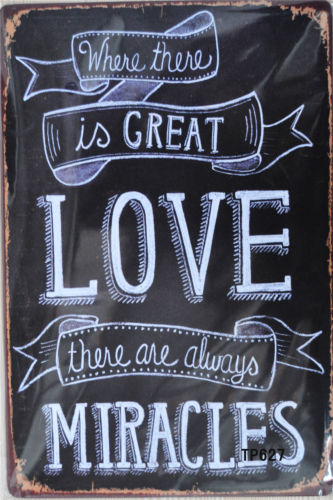 Where there
is GREAT
LOVE
there are always
MIRACLES
TP627